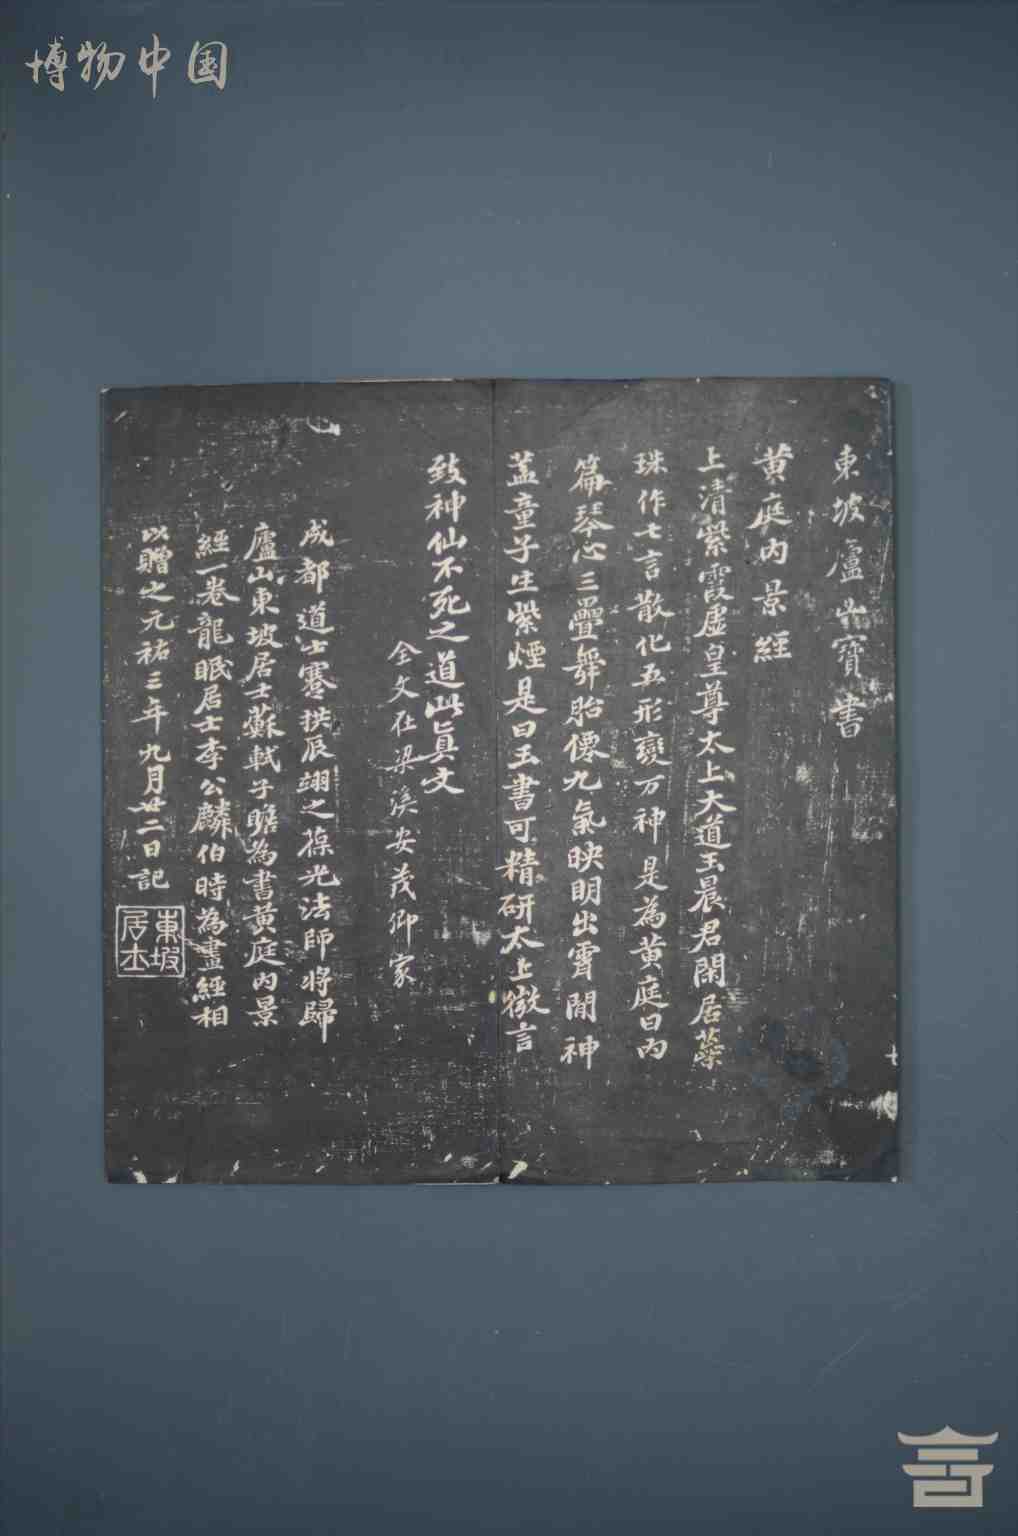 博物中国
東坡廬山寶書
黄庭内景經
上清紫霞虛皇尊太上大道玉晨君閑居蘂
珠作七言散化五形變万神是為黄庭曰内
篇琴心三疊舞胎僊九氣映明出霄間神
盖童子生紫煙是曰玉書可精研太上微言
致神仙不死之道此真文
全文在梁溪安茂卿家
成都道士蹇拱辰翊之葆光法師將歸
廬山東坡居士蘇軾子瞻為書黄庭内景
經一卷龍眠居士李公麟伯時為畫經相
以贈之元祐三年九月廿二日記
東坡居士